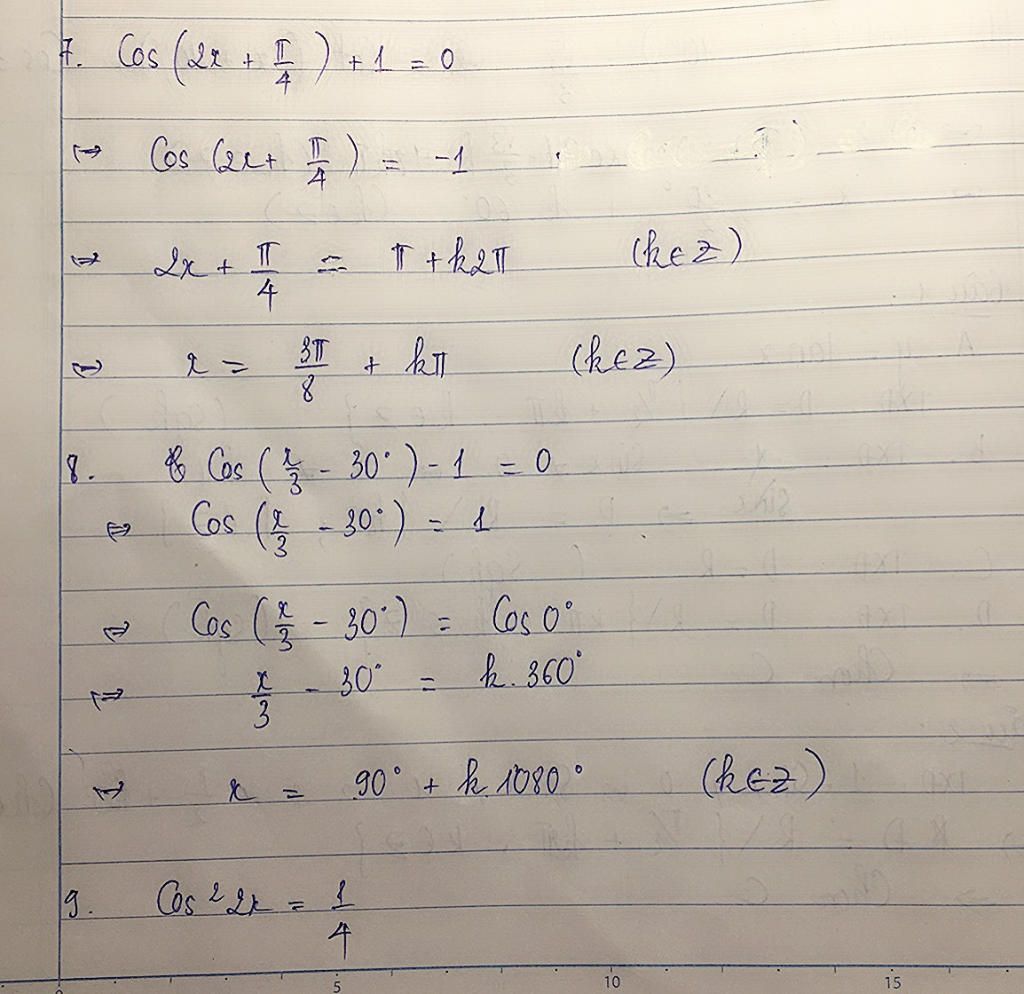 7. Cos(2x + π/4) + 1 = 0
⇔ Cos(2x + π/4) = -1
⇔ 2x + π/4 = π + k2π (k∈Z)
⇔ x = 3π/8 + kπ (k∈Z)
8. Cos(x/3 - 30°) - 1 = 0
⇔ Cos(x/3 - 30°) = 1
⇔ Cos(x/3 - 30°) = Cos 0°
⇔ x/3 - 30° = k.360°
⇔ x = 90° + k.1080° (k∈Z)
9. Cos² 2x = 1/4
5 10 15